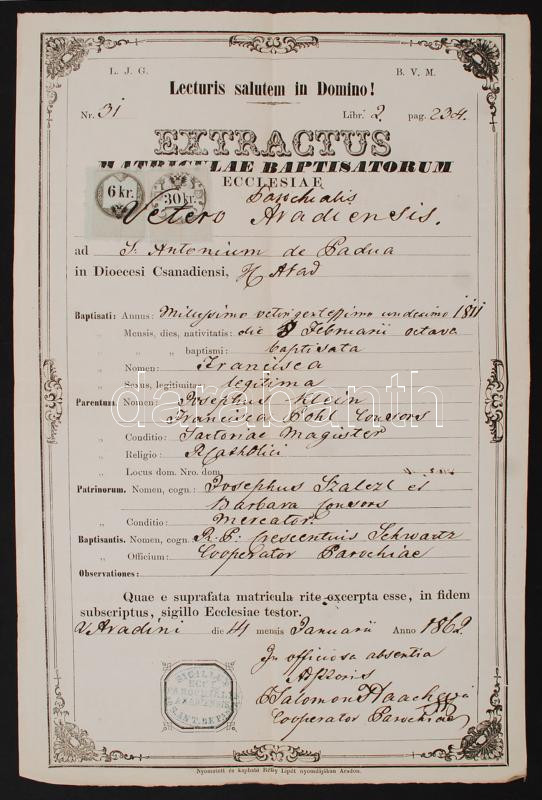 L. J. G. B. V. M.
Lecturis salutem in Domino!
Nr. 31 Libr. 2. pag. 234.
EXTRACTUS
MATRICULAE BAPTISATORUM
ECCLESIAE
Parochialis
6 kr. 30 kr.
Vetero Aradiensis.
ad S. Antonium de Padua
in Dioecesi Csanadiensi, Arad
Baptisati: Annus: Millesimo undecimo 1811
Mensis, dies, nativitatis: die 8 Februarii octava
„ „ baptismi: baptisata
„ Nomen: Francisca
„ Sexus, legitimitas: legitima
Parentum: Nomen: Josephus Klein
Francisca Pohl Consors
„ Conditio: Sartoriae Magister
„ Religio: R. Catholici
„ Locus dom. Nro. dom.
Patrinorum. Nomen, cogn.: Josephus Szalezl et
Barbara Consors
„ Conditio: Mercator.
Baptisantis. Nomen, cogn.: R. P. Crescentius Schwartz
„ Officium: Cooperator Parochiae
Observationes:
darabanth
Quae e suprafata matricula rite excerpta esse, in fidem
subscriptus, sigillo Ecclesiae testor.
V. Aradini die 14 mensis Januarii Anno 1862.
In officiosa absentia
Salomon
Cooperator Parochiae
SIGILLUM
Nyomatott és kapható Réthy Lipót nyomdájában Aradon.